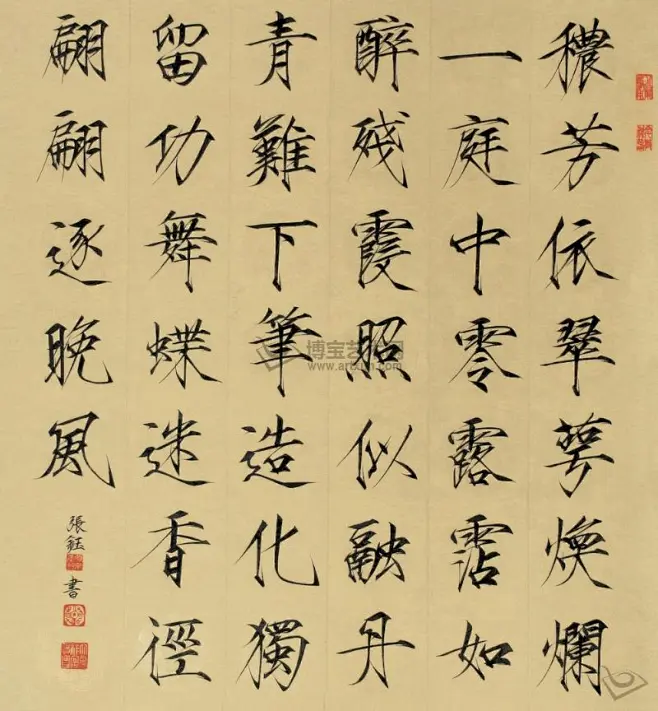 穠芳依翠萼煥爛
一庭中零露霑如
醉殘霞照似融丹
青難下筆造化獨
留功舞蝶迷香徑
翩翩逐晚風
張鈺書
博宝艺术网
www.artxun.com